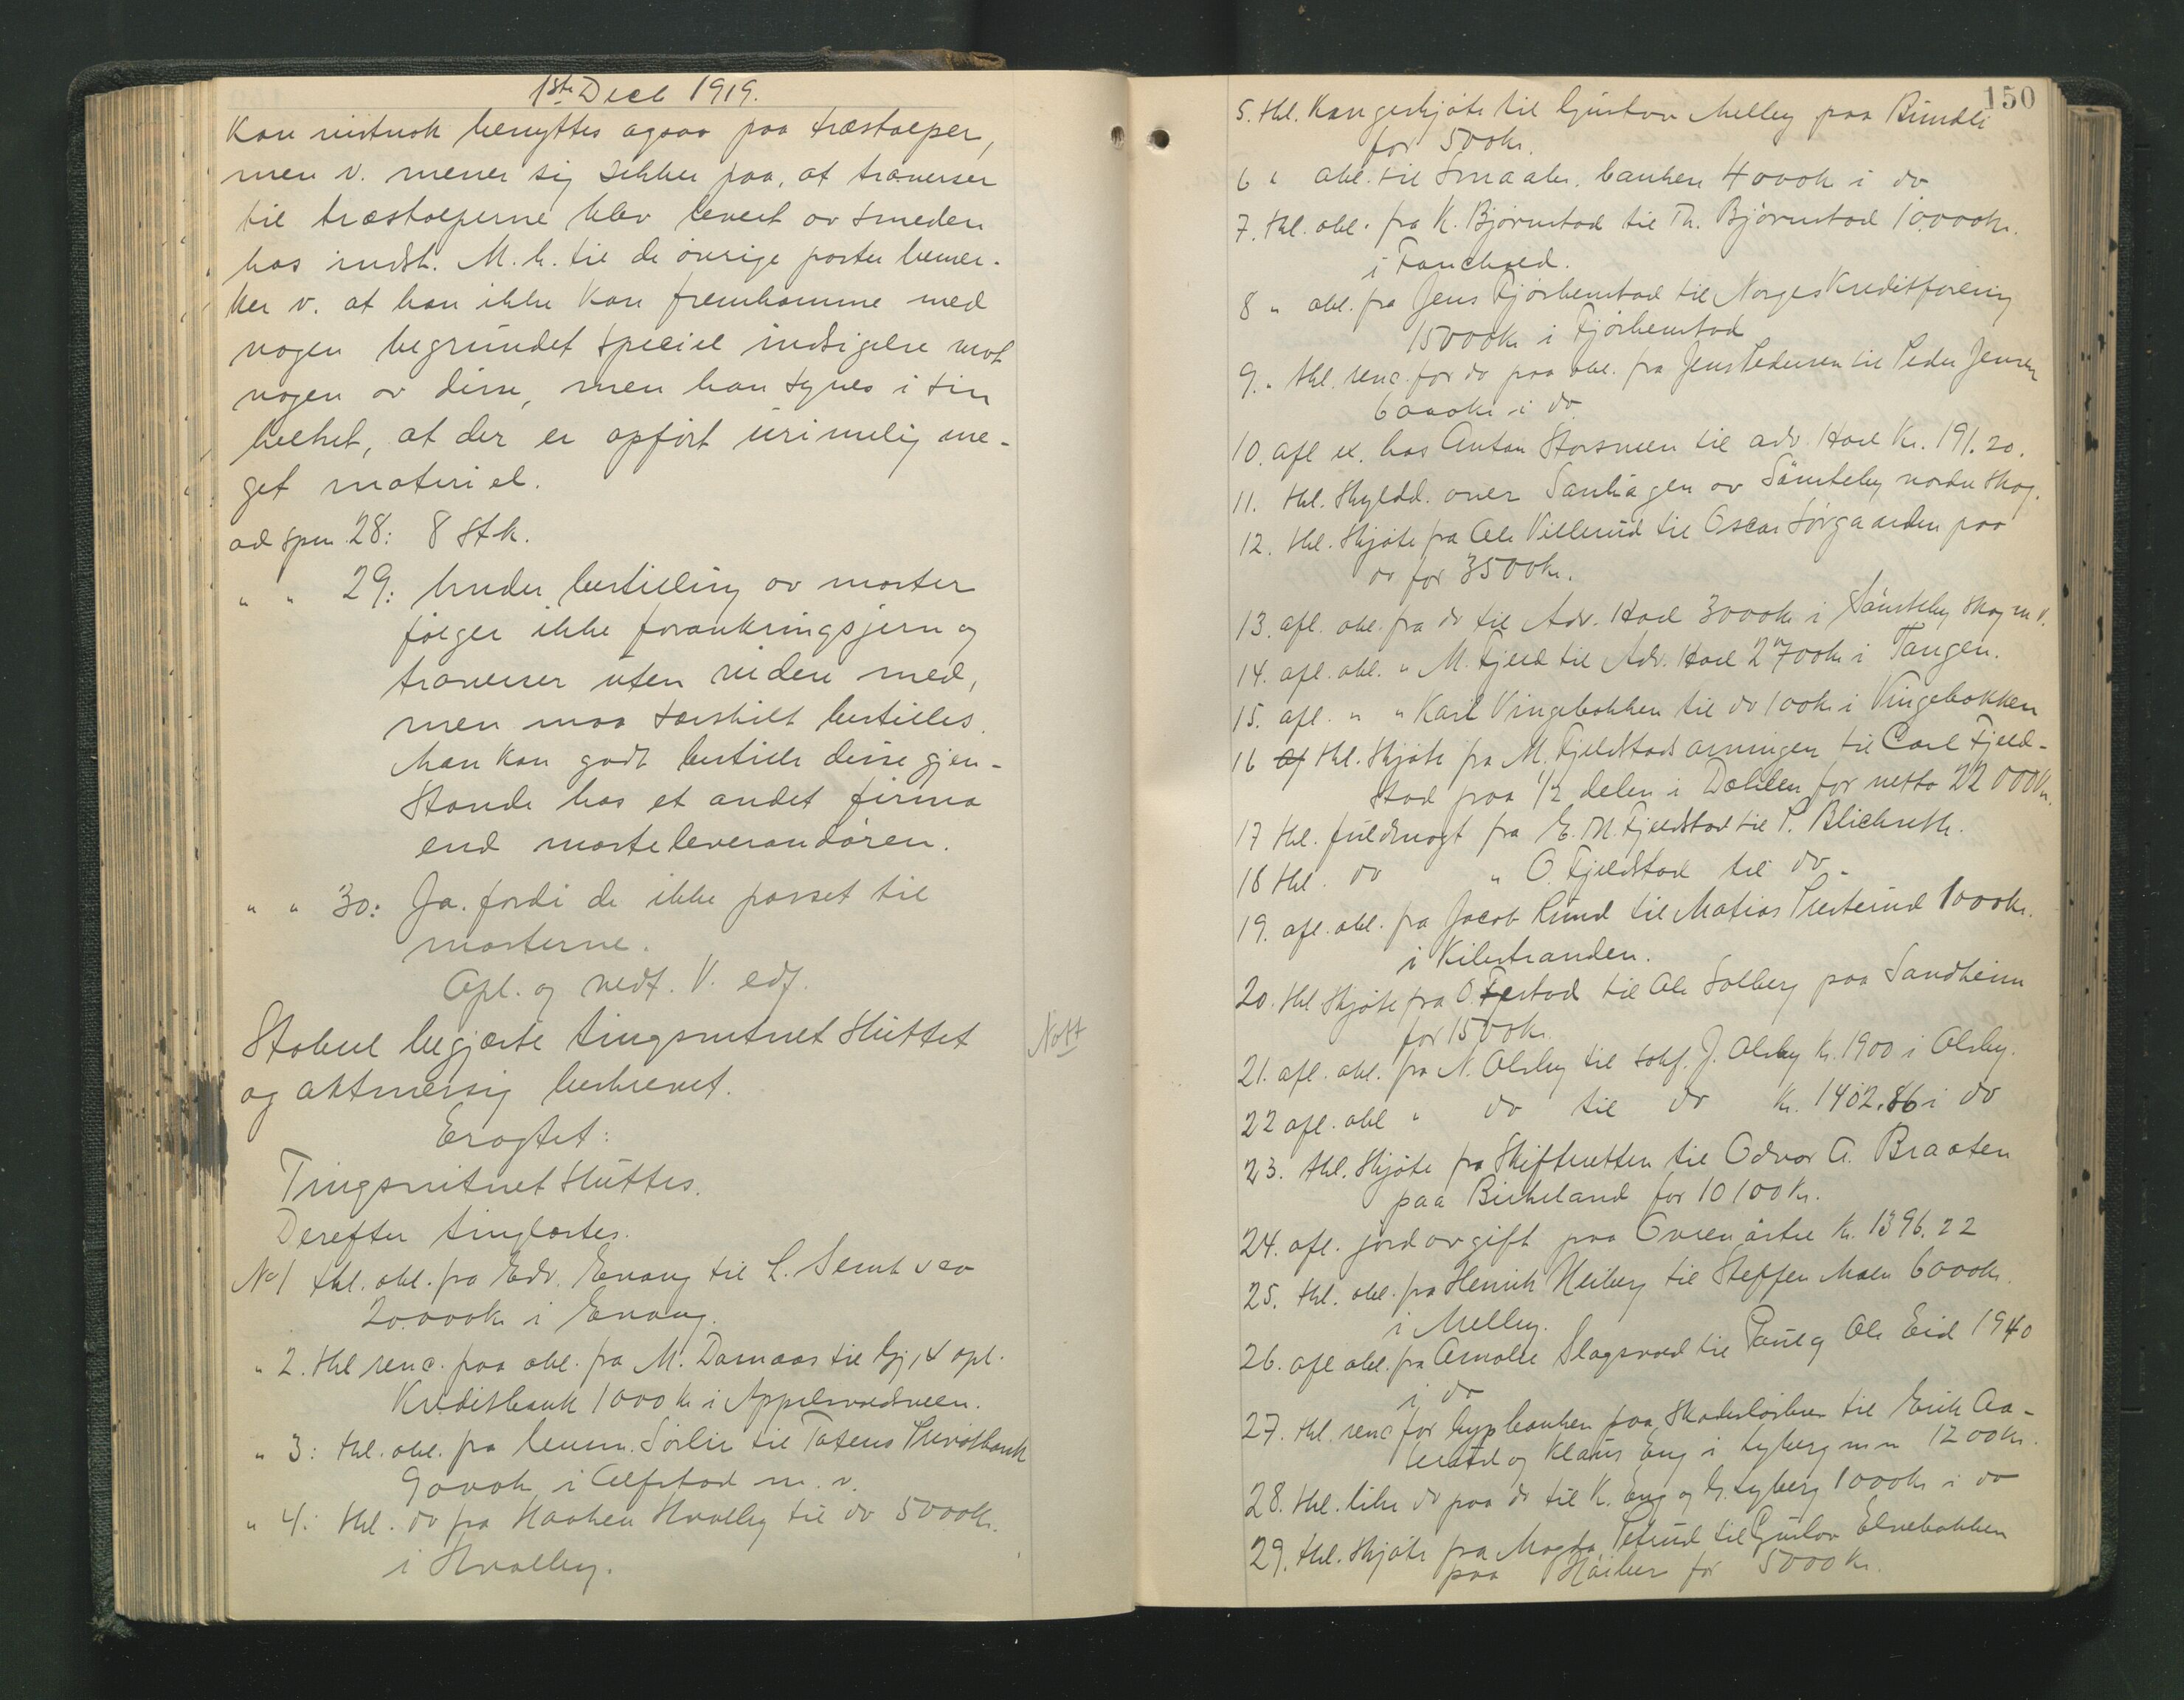 1ste Decb 1919.
kan vistnok benyttes ogsaa paa træstolper,
men v. mener sig sikker paa, at traverser
til træstolperne blev levert av smeden
hos indst. M. h. til de øvrige poster bemer-
ker v. at han ikke kan fremkomme med
nogen begrundet speciel indsigelse mot
nogen av disse, men han synes i sin
helhet, at der er opført urimelig me-
get materiel.
ad spm. 28: 8 stk.
" " 29: Under bestilling av master
følger ikke forankringsjern og
traverser uten videre med,
men maa særskilt bestilles.
Man kan godt bestille disse gjen-
stande hos et andet firma
end masteleverandøren.
" " 30: Ja. fordi de ikke passet til
masterne.
Opl. og vedt. V. edf.
begjærte tingsvitnet sluttet
og aktmæssig beskrevet.
Nott
Eragtet:
Tingsvitnet sluttes.
Derefter tinglæstes.
No 1 thl. obl. fra Edv. Evang til L. Semb
20.000 kr i Evang.
" 2. thl renc. paa obl. fra M. Damaas til Gj. & opl.
Kreditbank 1000 kr i
" 3: thl. obl. fra Sørlie til Totens Privatbank
9000 kr i Alfstad m. v.
" 4: thl. do fra Haaken Hvalby til do 5000 kr.
i Hvalby.
150
5. thl. Kongeskjøte til Gustav Melby paa Rundli
for 500 kr.
6 " obl. til Smaabr. banken 4000 kr i do
7. thl. obl. fra K. Bjørnstad til Th. Bjørnstad 10.000 kr.
i
8 " obl. fra Jens Fjørkenstad til Norges Kreditforening
15000 kr i Fjørkenstad
9. " thl. renc. for do paa obl. fra Jens Pedersen til Peder Jensen
6000 kr i do
10. afl ex. hos Anton Storsveen til adv. Hoel Kr. 191.20.
11. thl. skyldd. over Sanhagen av Sønsteby nordre skog.
12. thl. skjøte fra Ole Villerud til Oscar Sørgaarden paa
do for 3500 kr.
13. afl. obl. fra do til Adv. Hoel 3000 kr i Sønsteby skog m. v.
14. afl. obl. " M. Fjeld til Adv. Hoel 2700 kr i Tangen.
15. afl. " " Karl Vingebakken til do 100 kr i Vingebakken
16 thl. skjøte fra M. Fjeldstads arvinger til Carl Fjeld-
stad paa 1/2 delen i Dæhlen for netto 22000 kr.
17 thl. fuldmagt fra E. M. Fjeldstad til P. Blichfeldt.
18 thl. do " O. Fjeldstad til do.
19. afl. obl. fra Jacob Rund til Matias Presterud 1000 kr.
i Kilestranden.
20. thl skjøte fra O. til Ole Solberg paa Sandheim
for 1500 kr.
21. afl. obl. fra N. Olsby til sakf. J. Olsby kr. 1900 i Olsby.
22 afl. obl " do til do kr. 1402.86 i do
23. thl. skjøte fra Skifteretten til Odvar A. Braaten
paa Birkeland for 10100 kr.
24. afl. jordavgift paa kr. 1396.22
25. thl. obl. fra Henrik Heiberg til Steffen Moen 6000 kr.
i Melby.
26. afl obl. fra Slagsvold til Paul og Ole Eid 1940
i do
27. thl. renc. for hypbanken paa skadesløsbrev til Erik Aa-
og Klaus Eng i Lyberg m m 1200 kr.
28. thl. like do paa do til K. Eng og G. Lyberg 1000 kr i do
29. thl. skjøte fra Magda til Gustav Elvebakken
paa for 5000 kr.